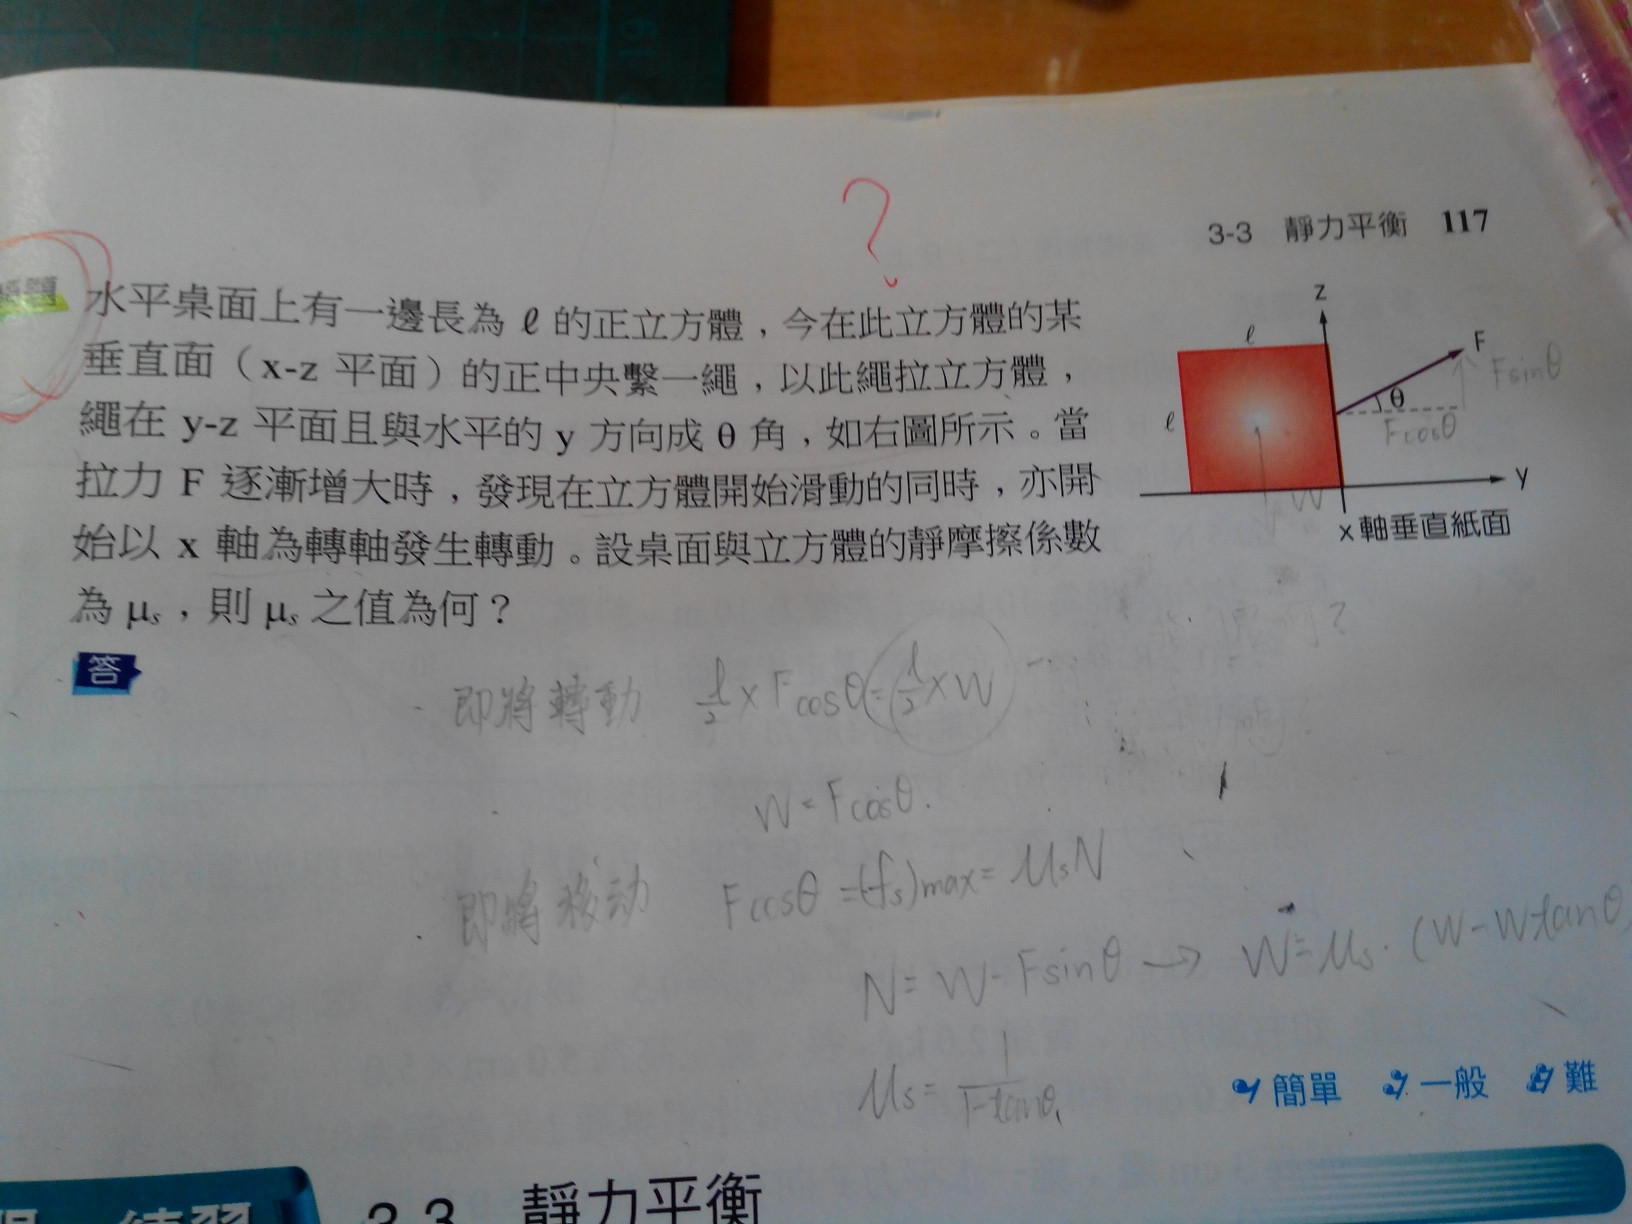 3-3 靜力平衡 117
?
水平桌面上有一邊長為 ℓ 的正立方體，今在此立方體的某
垂直面（x-z 平面）的正中央繫一繩，以此繩拉立方體，
繩在 y-z 平面且與水平的 y 方向成 θ 角，如右圖所示。當
拉力 F 逐漸增大時，發現在立方體開始滑動的同時，亦開
始以 x 軸為轉軸發生轉動。設桌面與立方體的靜摩擦係數
為 μs，則 μs 之值為何？
z
ℓ
F
Fsinθ
θ
ℓ
Fcosθ
W
y
x 軸垂直紙面
答
即將轉動 ℓ/2 × Fcosθ = ℓ/2 × W
W = Fcosθ.
即將移动 Fcosθ = (fs)max = μsN
N = W - Fsinθ → W = μs · (W - Wtanθ)
μs =
簡單 一般 難
練習 3-3 靜力平衡